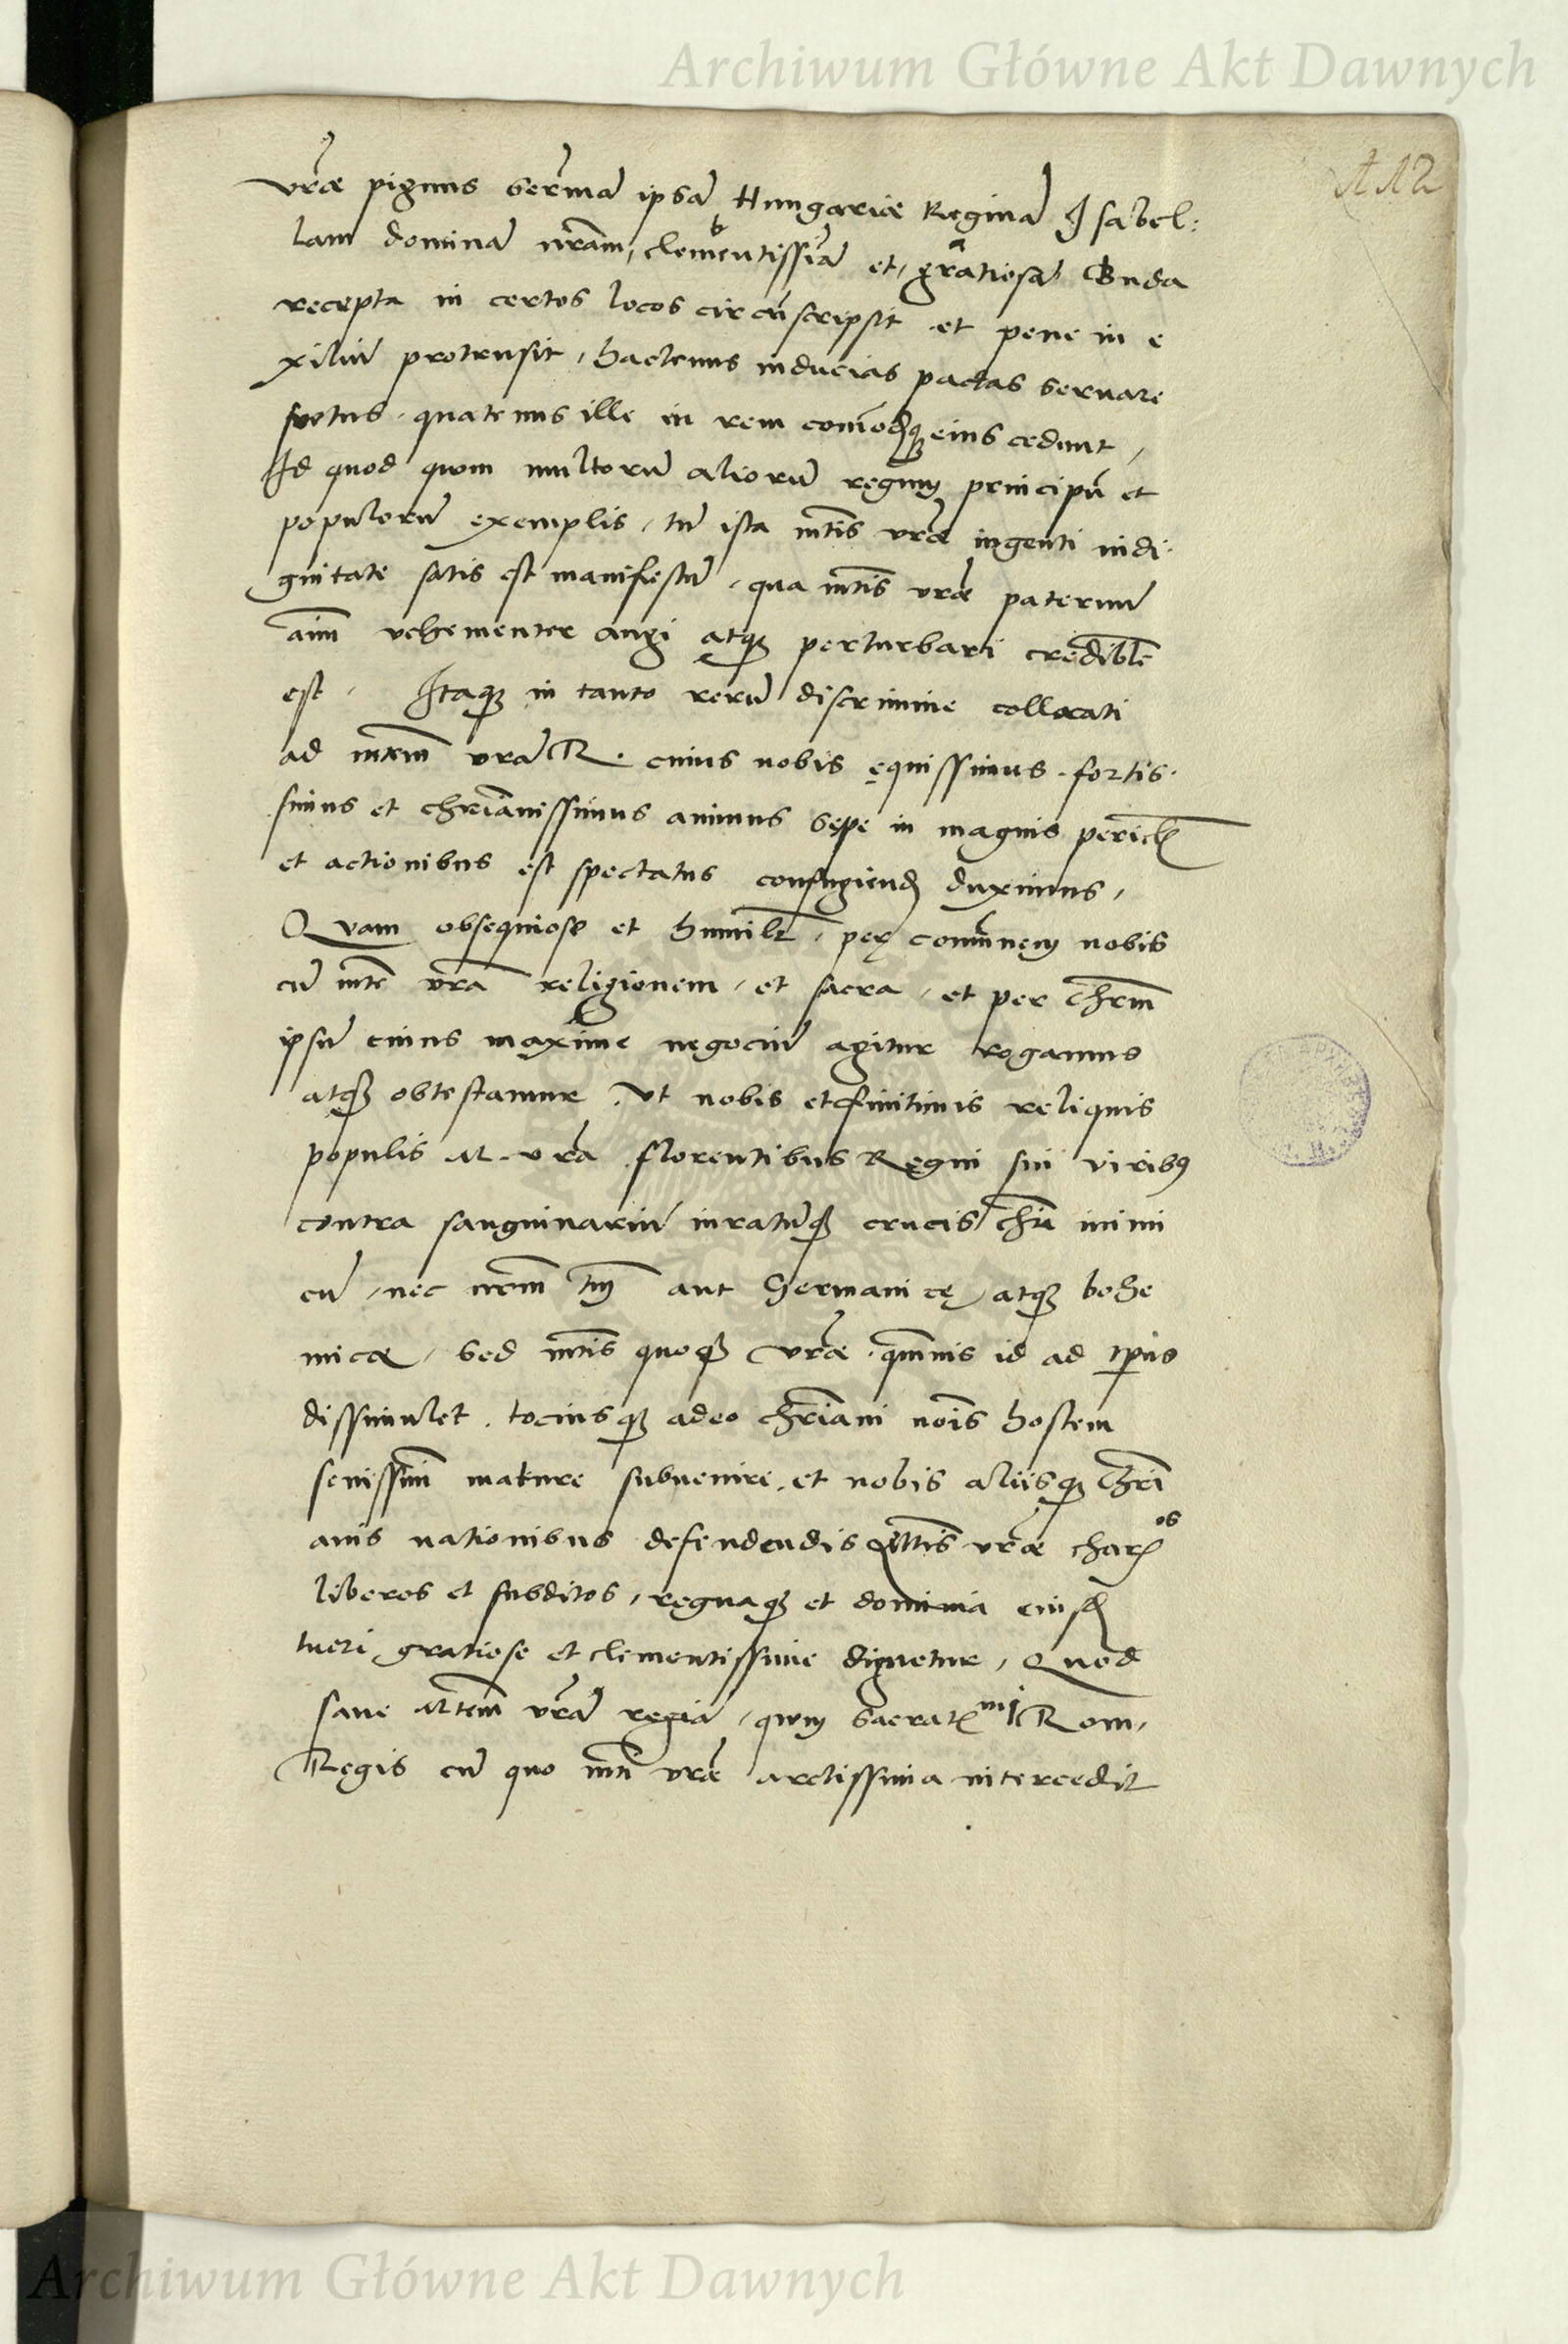 Archiwum Główne Akt Dawnych
112
vr̃ae pignus Serm̃ã ipsã Hungariae Reginã Isabel:
lam dominã nr̃am, clementissĩã et, gratiosã Buda
recepta in certos locos circũscripsit et pene in e
xiliũ protrusit, hactenus inducias pactas servare
solitus, quatenus ille in rem com̃odq3 eius cedunt,
Id quod quom multorũ aliorũ regum principũ et
populorũ exemplis, tũ ista mt̃is vr̃ae ingenti indi-
gnitate satis est manifestũ, qua mt̃is vr̃ae paternũ
aĩm vehementer angi atq3 perturbari credibile
est, Itaq3 in tanto rerũ discrimine collocati
ad mtem̃ vr̃ã R. cuius nobis ęquissimus, fortis-
simus et chr̃ianissimus animus sępe in magnis pericł
et actionibus est spectatus confugiend duximus,
Quam obsequiose et humilr̃, per com̃unem nobis
cũ mt̃e vr̃a religionem, et sacra, et per Chr̃m
ipsũ cuius maxime negociũ agitur rogamus
atq3 obtestamur, Ut nobis et finitimis reliquis
populis M. vr̃a florentibus Regni sui virib9
contra sanguinariũ iuratũq3 crucis Chr̃i inimi
cũ, nec nr̃m tm̃ aut Germanicę atq3 bohe
micae, sed mt̃is quoq3 vr̃ae, quamvis id ad tp̃us
dissimulet, tociusq3 adeo chr̃iani noĩs hostem
sevissim̃ mature subvenire, et nobis aliisq3 Chr̃i
anis nationibus defendendis Mt̃is vr̃ae char os
liberos et subditos, regnaq3 et dominia eiusd
tueri gratiose et clementissime dignetur, Quod
sane Mtem̃ vr̃ã regiã, qum Sacrat mi Rom,
Regis cũ quo mt̃i vr̃ae arctissima intercedit
Archiwum Główne Akt Dawnych